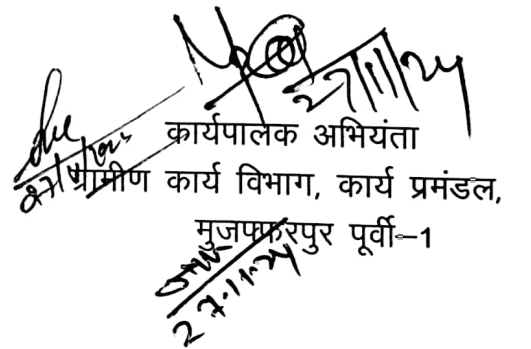 27/11/24
कार्यपालक अभियंता
ग्रामीण कार्य विभाग, कार्य प्रमंडल,
मुजफ्फरपुर पूर्वी–1
27.11.24